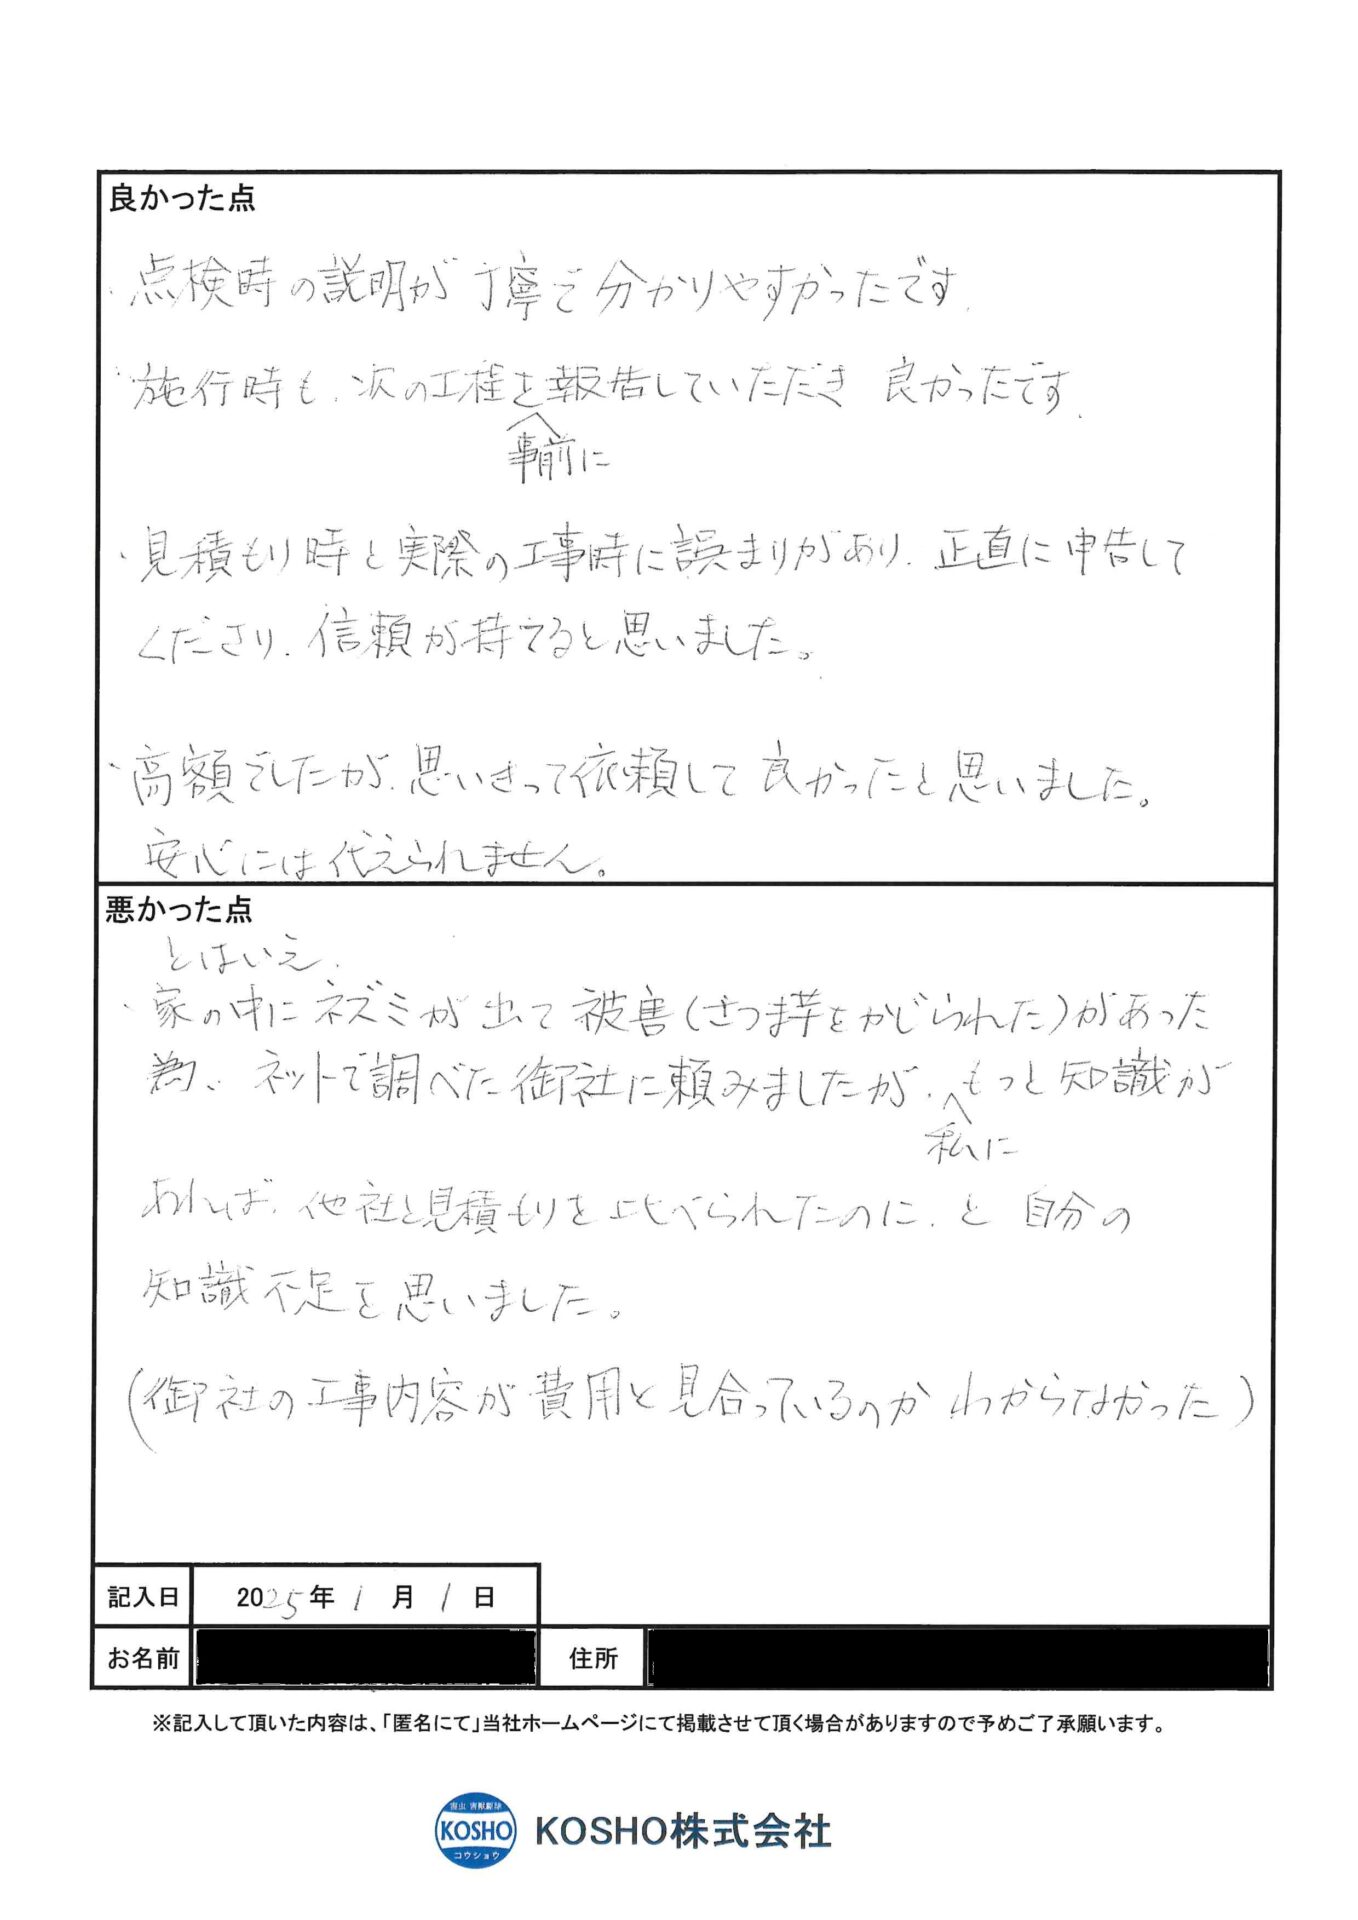 良かった点
・点検時の説明が丁寧で分かりやすかったです.
・施行時も.次の工程を報告していただき 良かったです.
事前に
・見積もり時と実際の工事時に誤まりがあり.正直に申告して
くださり.信頼が持てると思いました。
・高額でしたが.思いきって依頼して良かったと思いました。
安心には代えられません。
悪かった点
とはいえ.
・家の中にネズミが出て被害(さつま芋をかじられた)があった
為、ネットで調べた御社に頼みましたが.もっと知識が
私に
あれば.他社と見積もりを比べられたのに.と自分の
知識不足を思いました。
(御社の工事内容が費用と見合っているのかわからなかった)
記入日 2025年 1月 1日
お名前 住所
※記入して頂いた内容は、「匿名にて」当社ホームページにて掲載させて頂く場合がありますので予めご了承願います。
害虫 害獣駆除
KOSHO
コウショウ
KOSHO株式会社